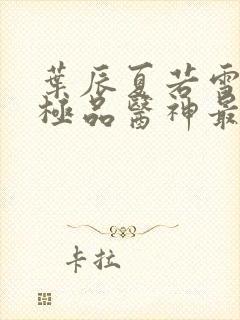 葉辰夏若雪
極品醫神最
卡拉